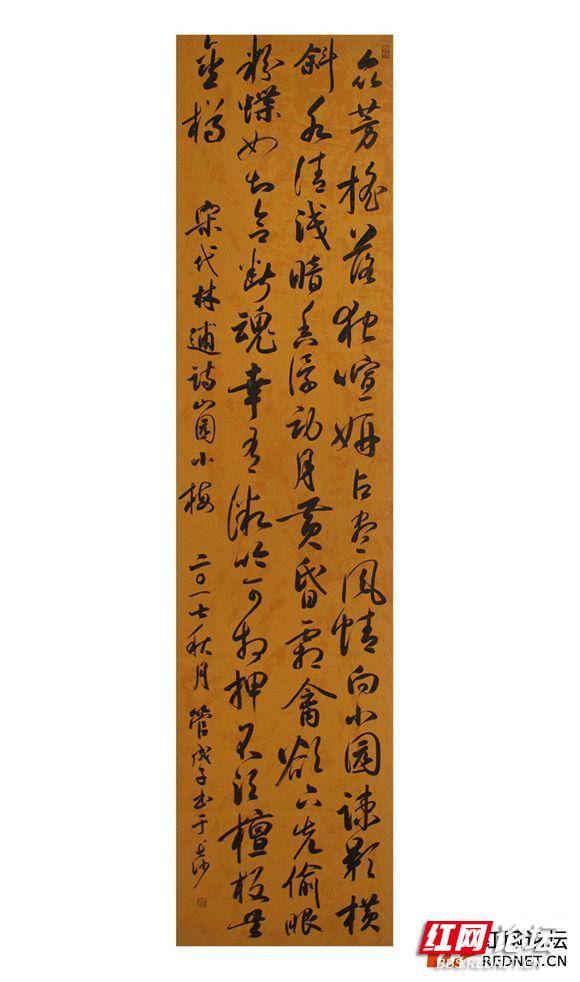 众芳摇落独喧妍占尽风情向小园疎影横
斜水清浅暗香浮动月黄昏霜禽欲下先偷眼
粉蝶如知合断魂幸有微吟可相狎不须檀板共
金樽
宋代林逋诗山园小梅 二〇一七秋月 管戍子书于长沙
红网论坛
BBS.REDNET.CN
红网论坛
REDNET.CN